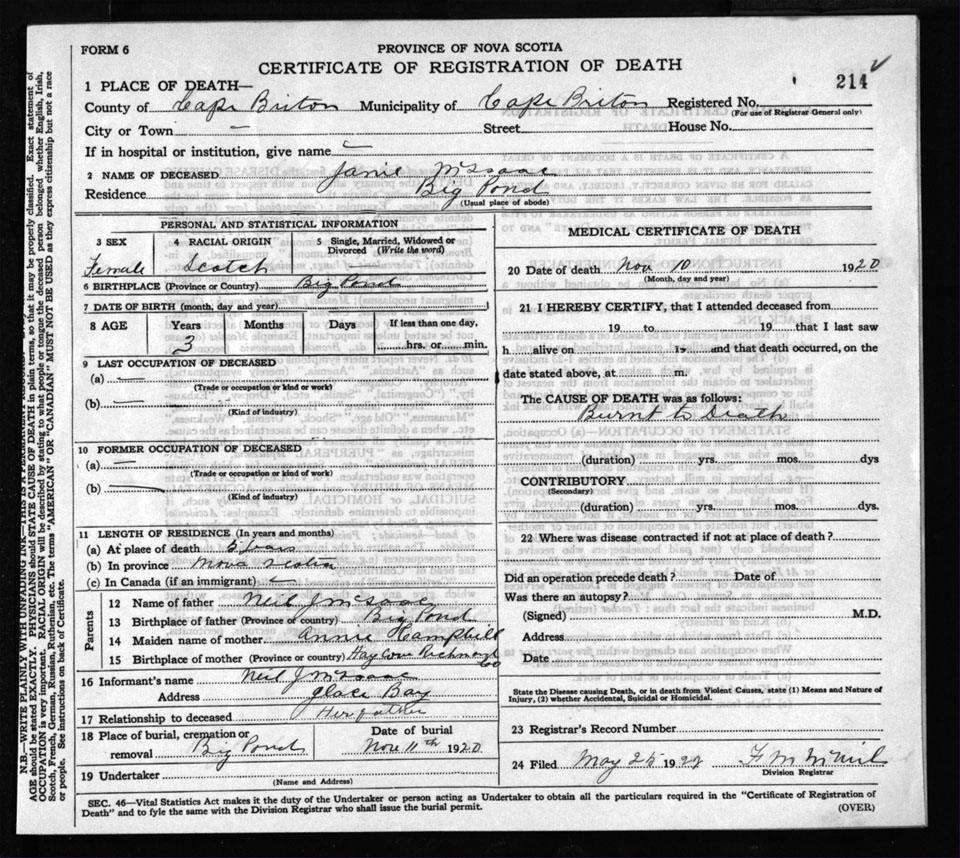 FORM 6
PROVINCE OF NOVA SCOTIA
CERTIFICATE OF REGISTRATION OF DEATH
214
1 PLACE OF DEATH—
County of Cape Briton Municipality of Cape Briton Registered No.
(For use of Registrar General only)
City or Town — Street House No.
If in hospital or institution, give name
2 NAME OF DECEASED Janie McIsaac
Residence Big Pond
(Usual place of abode)
PERSONAL AND STATISTICAL INFORMATION
3 SEX 4 RACIAL ORIGIN 5 Single, Married, Widowed or Divorced (Write the word)
Female Scotch —
6 BIRTHPLACE (Province or Country) Big Pond
7 DATE OF BIRTH (month, day and year)
8 AGE Years Months Days If less than one day,
3 hrs. or min.
9 LAST OCCUPATION OF DECEASED
(a) —
(Trade or occupation or kind or work)
(b) —
(Kind of industry)
10 FORMER OCCUPATION OF DECEASED
(a) —
(Trade or occupation or kind of work)
(b) —
(Kind of industry)
11 LENGTH OF RESIDENCE (In years and months)
(a) At place of death
(b) In province Nova Scotia
(c) In Canada (if an immigrant)
Parents
12 Name of father Neil J McIsaac
13 Birthplace of father (Province or country) Big Pond
14 Maiden name of mother Annie Campbell
15 Birthplace of mother (Province or country) Hay Cove Richmond Co
16 Informant's name Neil J McIsaac
Address Glace Bay
17 Relationship to deceased Her father
18 Place of burial, cremation or removal Big Pond
Date of burial
Nov 11th 1920
19 Undertaker
(Name and Address)
MEDICAL CERTIFICATE OF DEATH
20 Date of death Nov 10 1920
(Month, day and year)
21 I HEREBY CERTIFY, that I attended deceased from
19 to 19 that I last saw
h alive on 19 and that death occurred, on the
date stated above, at m.
The CAUSE OF DEATH was as follows:
Burnt to Death
(duration) yrs. mos. dys
CONTRIBUTORY
(Secondary)
(duration) yrs. mos. dys.
22 Where was disease contracted if not at place of death?
Did an operation precede death? Date of
Was there an autopsy?
(Signed) M.D.
Address
Date
State the Disease causing Death, or in death from Violent Causes, state (1) Means and Nature of
Injury, (2) whether Accidental, Suicidal or Homicidal.
23 Registrar's Record Number
24 Filed May 25 192 F M McNeil
Division Registrar
SEC. 46—Vital Statistics Act makes it the duty of the Undertaker or person acting as Undertaker to obtain all the particulars required in the "Certificate of Registration of
Death" and to fyle the same with the Division Registrar who shall issue the burial permit.
(OVER)
N.B.—WRITE PLAINLY WITH UNFADING INK—THIS IS A PERMANENT RECORD.
AGE should be stated EXACTLY. PHYSICIANS should STATE CAUSE OF DEATH in plain terms, so that it may be properly classified. Exact statement of
OCCUPATION is very important. RACIAL ORIGIN will be described by stating to what people or tongue the deceased person belonged, whether English, Irish,
Scotch, French, German, Russian, Ruthenian, etc. The terms "AMERICAN" OR "CANADIAN" MUST NOT BE USED as they express citizenship but not a race
or people. See instructions on back of Certificate.